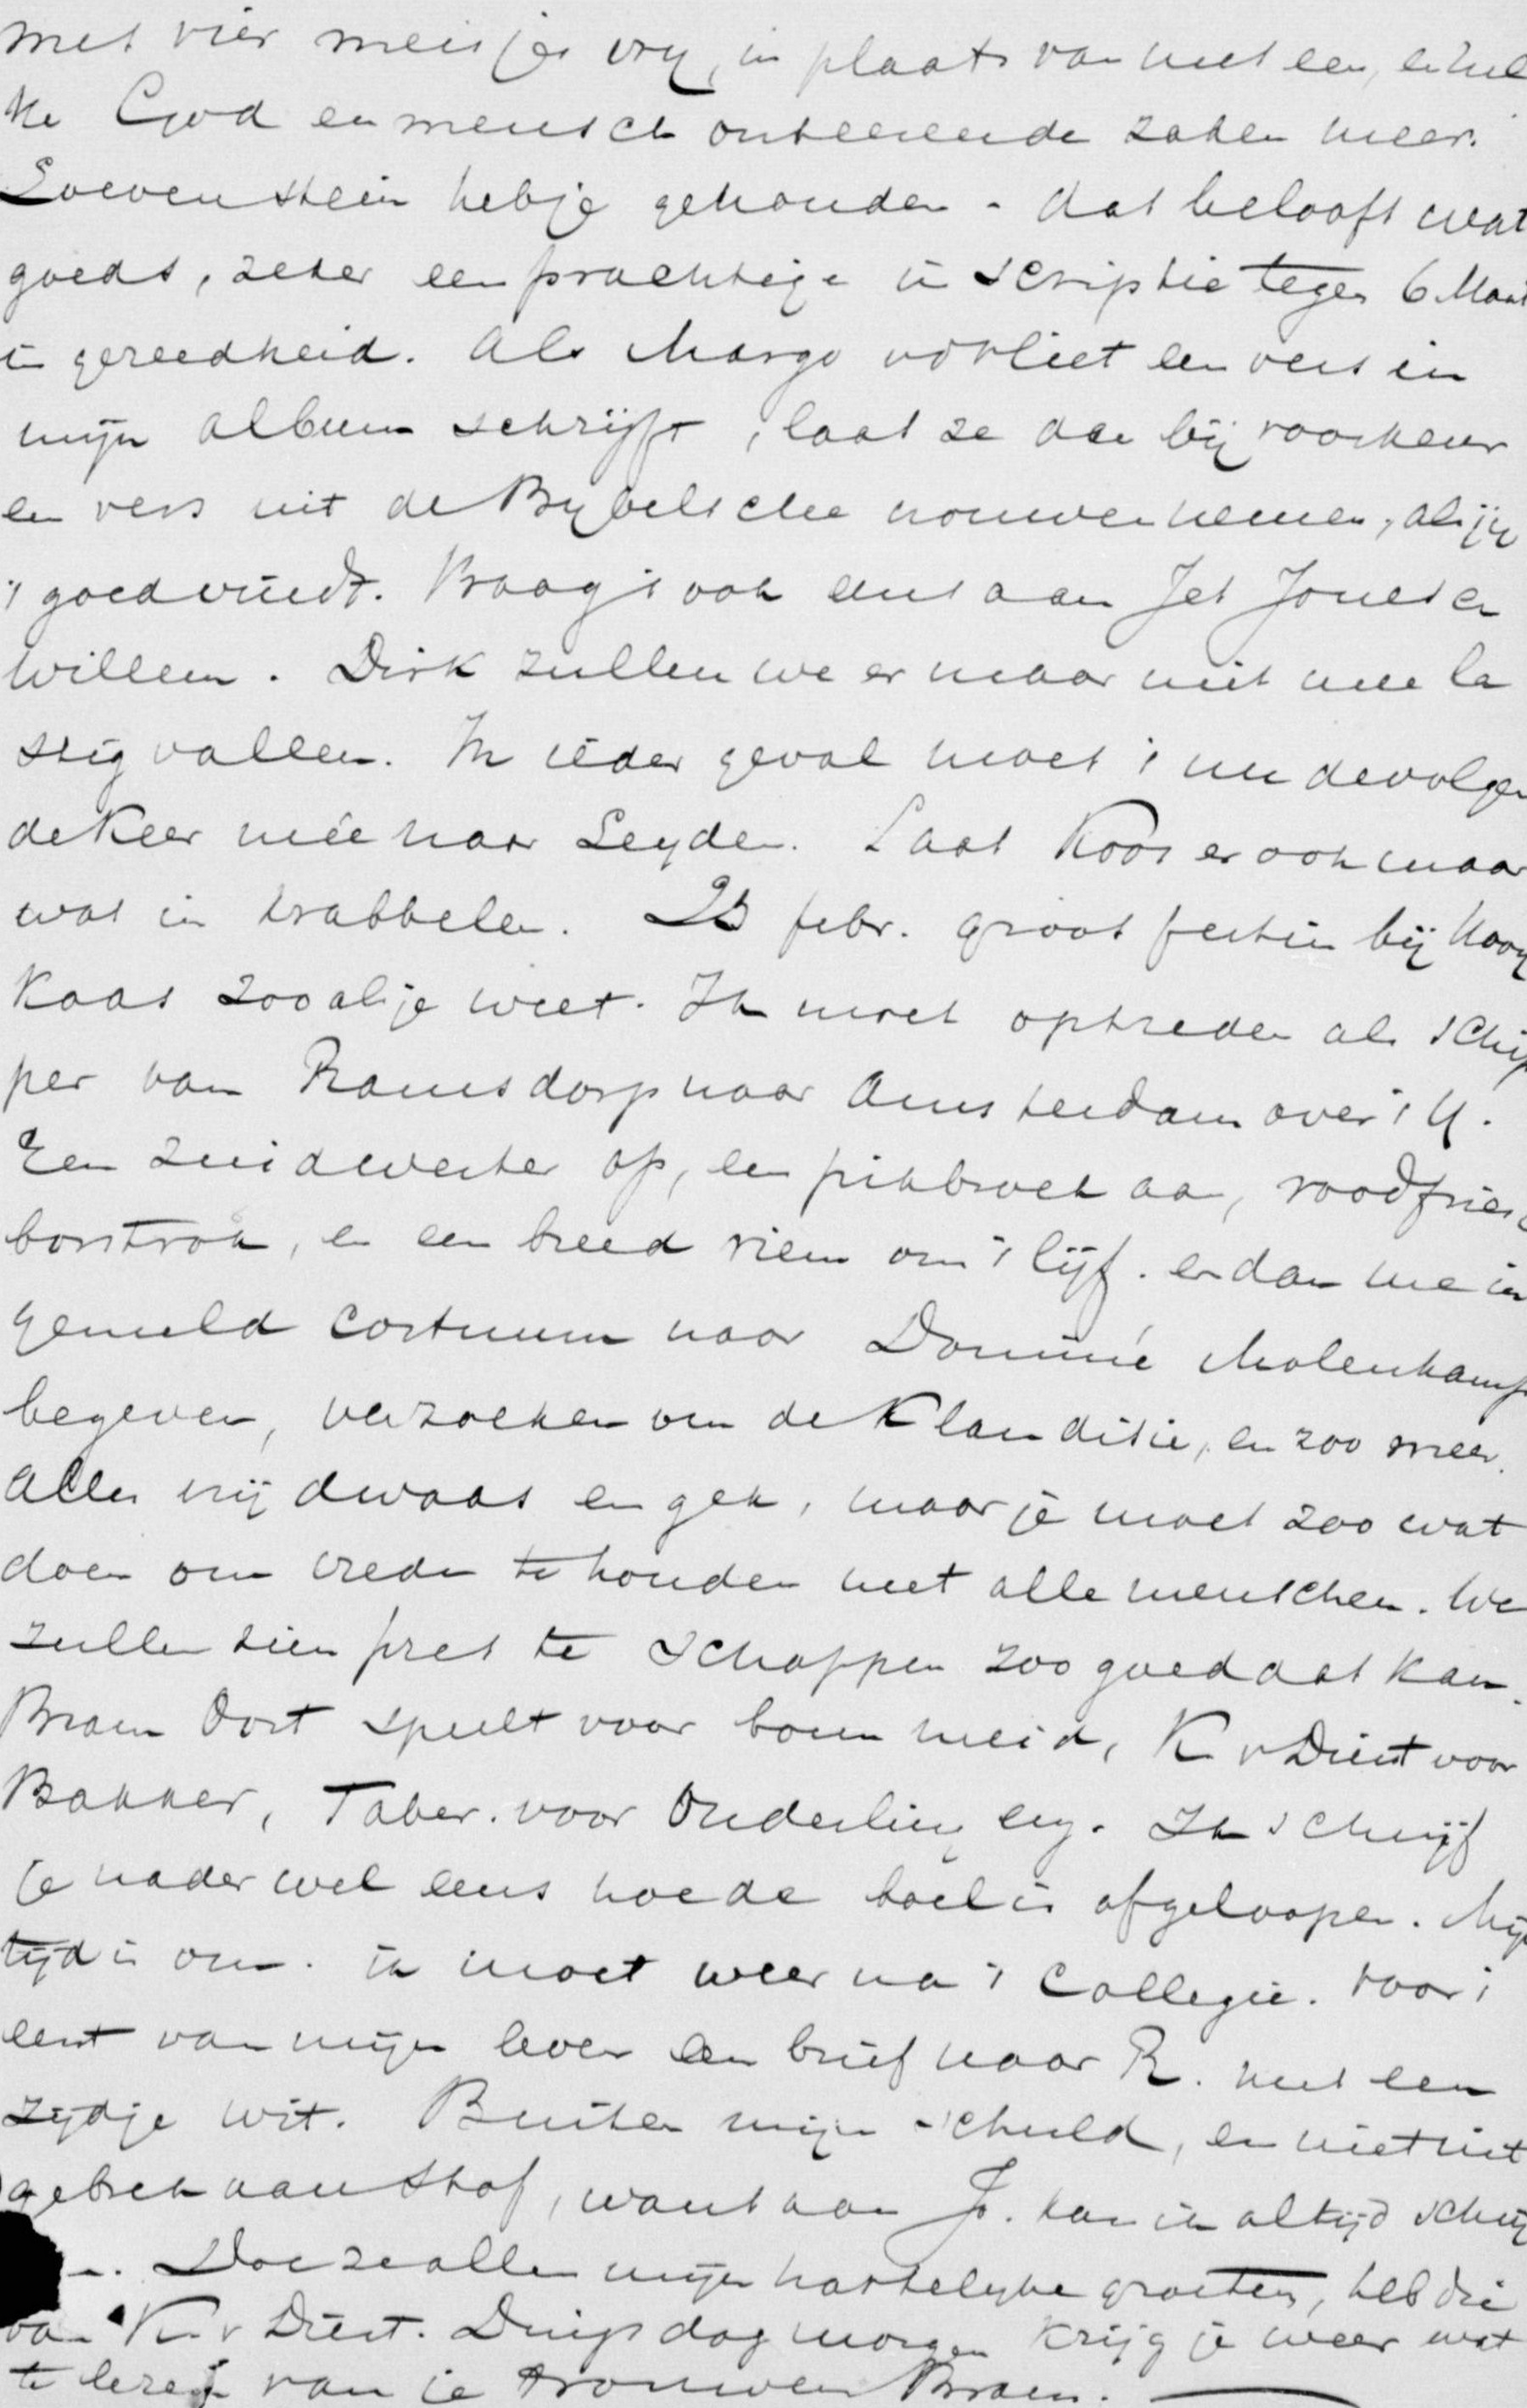 met vier meisjes vry, in plaats van met een, en hel
ke God en mensch onteerende zaken meer.
Loevenstein heb je gehouden - dat belooft wat
goeds, zeker een prachtige in scriptie tegen 6 Maart
in gereedheid. Als Margo vd Vliet een vers in
mijn album schrijft, laat ze dan bij voorkeur
een vers uit de Bybelsche vrouwen nemen, als jy
't goedvindt. Vraag 't ook eens aan Jet Jonst en
Willem. Dirk zullen we er maar niet mee la
stig vallen. In ieder geval moet 't nu de volgen
de Keer meê naar Leyden. Laat Koos er ook maar
wat in krabbelen. 25 febr. groot festin bij Kooy
Kaas zooals je weet. Ik moet optreden als schip
per van Ramsdorp naar Amsterdam over 't Y.
Een zuidwester op, een pikbroek aan, roodfries
borstrok, en een breed riem om 't lijf. en dan me in
gemeld costuum naar Dominé Molenkamp
begeven, verzoeken om de Klanditie, en zoo meer.
Alles vrij dwaas en gek, maar je moet zoo wat
doen om vrede te houden met alle menschen. We
zullen zien pret te schoppen zoo goed dat kan.
Bram Oort speelt voor bouw meid, K v Diest voor
Bakker, Taber. voor Ouderling enz. Ik schrijf
je nader wel eens hoe de boel is afgeloopen. Mijn
tijd is om. ik moet weer na 't Collegie. Voor 't
eerst van mijn leven een brief naar R. met een
zydje wit. Buiten mijn schuld, en niet uit
gebrek aan stof, want aan J. kan ik altijd schrij
n. Doe ze allen mijn hartelyke groeten, heb die
van K. v Diest. Dingsdag morgen krijg je weer wat
te lezen van je trouwen Bram.